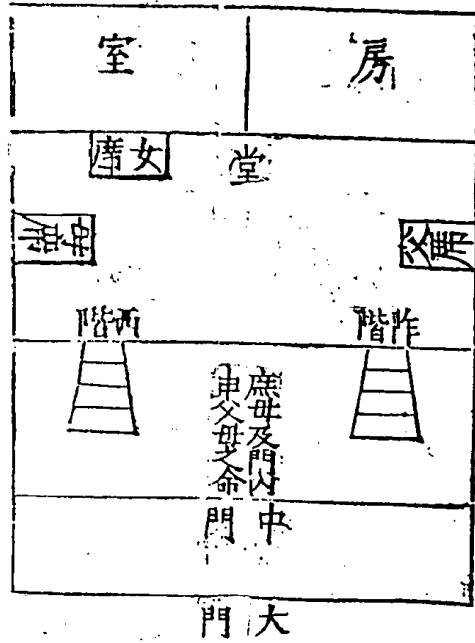 房
室
堂
女席
父席
母席
阼階
西階
庶母及門內
申父母之命
中門
大門